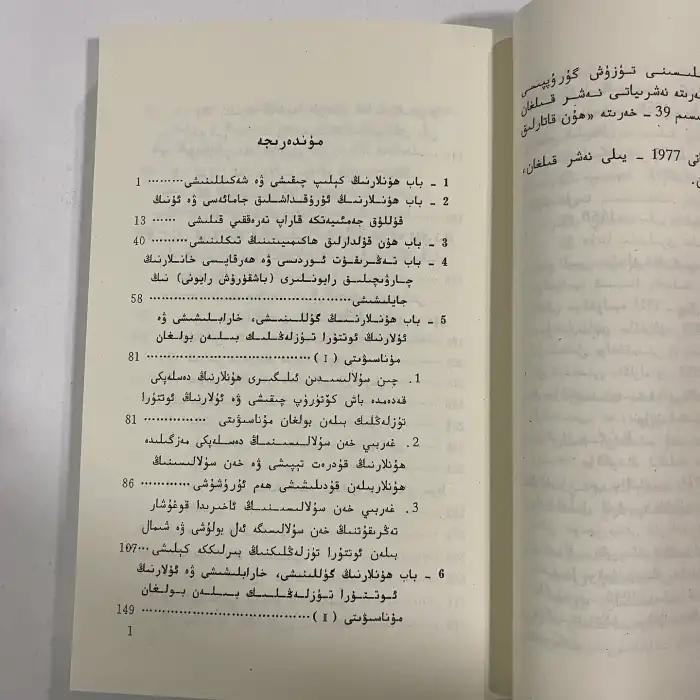 مۇندەرىجە
1 - باب ھۇنلارنىڭ كېلىپ چىقىشى ۋە شەكىللىنىشى ......... 1
2 - باب ھۇنلارنىڭ ئۇرۇقداشلىق جامائەسى ۋە ئۇنىڭ
قۇللۇق جەمئىيەتكە قاراپ تەرەققىي قىلىشى ...... 13
3 - باب ھۇن قۇلدارلىق ھاكىمىيىتىنىڭ تىكلىنىشى ......... 40
4 - باب تەڭرىقۇت ئوردىسى ۋە ھەرقايسى خانلارنىڭ
چارۋىچىلىق رايونلىرى (باشقۇرۇش رايونى) نىڭ
جايلىشىشى ...................................... 58
5 - باب ھۇنلارنىڭ گۈللىنىشى، خارابلىشىشى ۋە
ئۇلارنىڭ ئوتتۇرا تۈزلەڭلىك بىلەن بولغان
مۇناسىۋىتى (I) ................................ 81
1. چىن سۇلالىسىدىن ئىلگىرى ھۇنلارنىڭ دەسلەپكى
قەدەمدە باش كۆتۈرۈپ چىقىشى ۋە ئۇلارنىڭ ئوتتۇرا
تۈزلەڭلىك بىلەن بولغان مۇناسىۋىتى ............... 81
2. غەربىي خەن سۇلالىسىنىڭ دەسلەپكى مەزگىلىدە
ھۇنلارنىڭ قۇدرەت تېپىشى ۋە خەن سۇلالىسىنىڭ
ھۇنلاربىلەن قۇدىلىشىشى ھەم ئۇرۇشۇشى ............ 86
3. غەربىي خەن سۇلالىسىنىڭ ئاخىرىدا قوغۇشار
تەڭرىقۇتنىڭ خەن سۇلالىسىگە ئەل بولۇشى ۋە شىمال
بىلەن ئوتتۇرا تۈزلەڭلىكنىڭ بىرلىككە كېلىشى ... 107
6 - باب ھۇنلارنىڭ گۈللىنىشى، خارابلىشىشى ۋە ئۇلارنىڭ
ئوتتۇرا تۈزلەڭلىك بىلەن بولغان
مۇناسىۋىتى (II) ................................ 149
1
تۈزۈش گۇرۇپپىسى
نەشرىياتى نەشر قىلغان
39 - خەرىتە «ھۇن قاتارلىق
1977 - يىلى نەشر قىلغان،